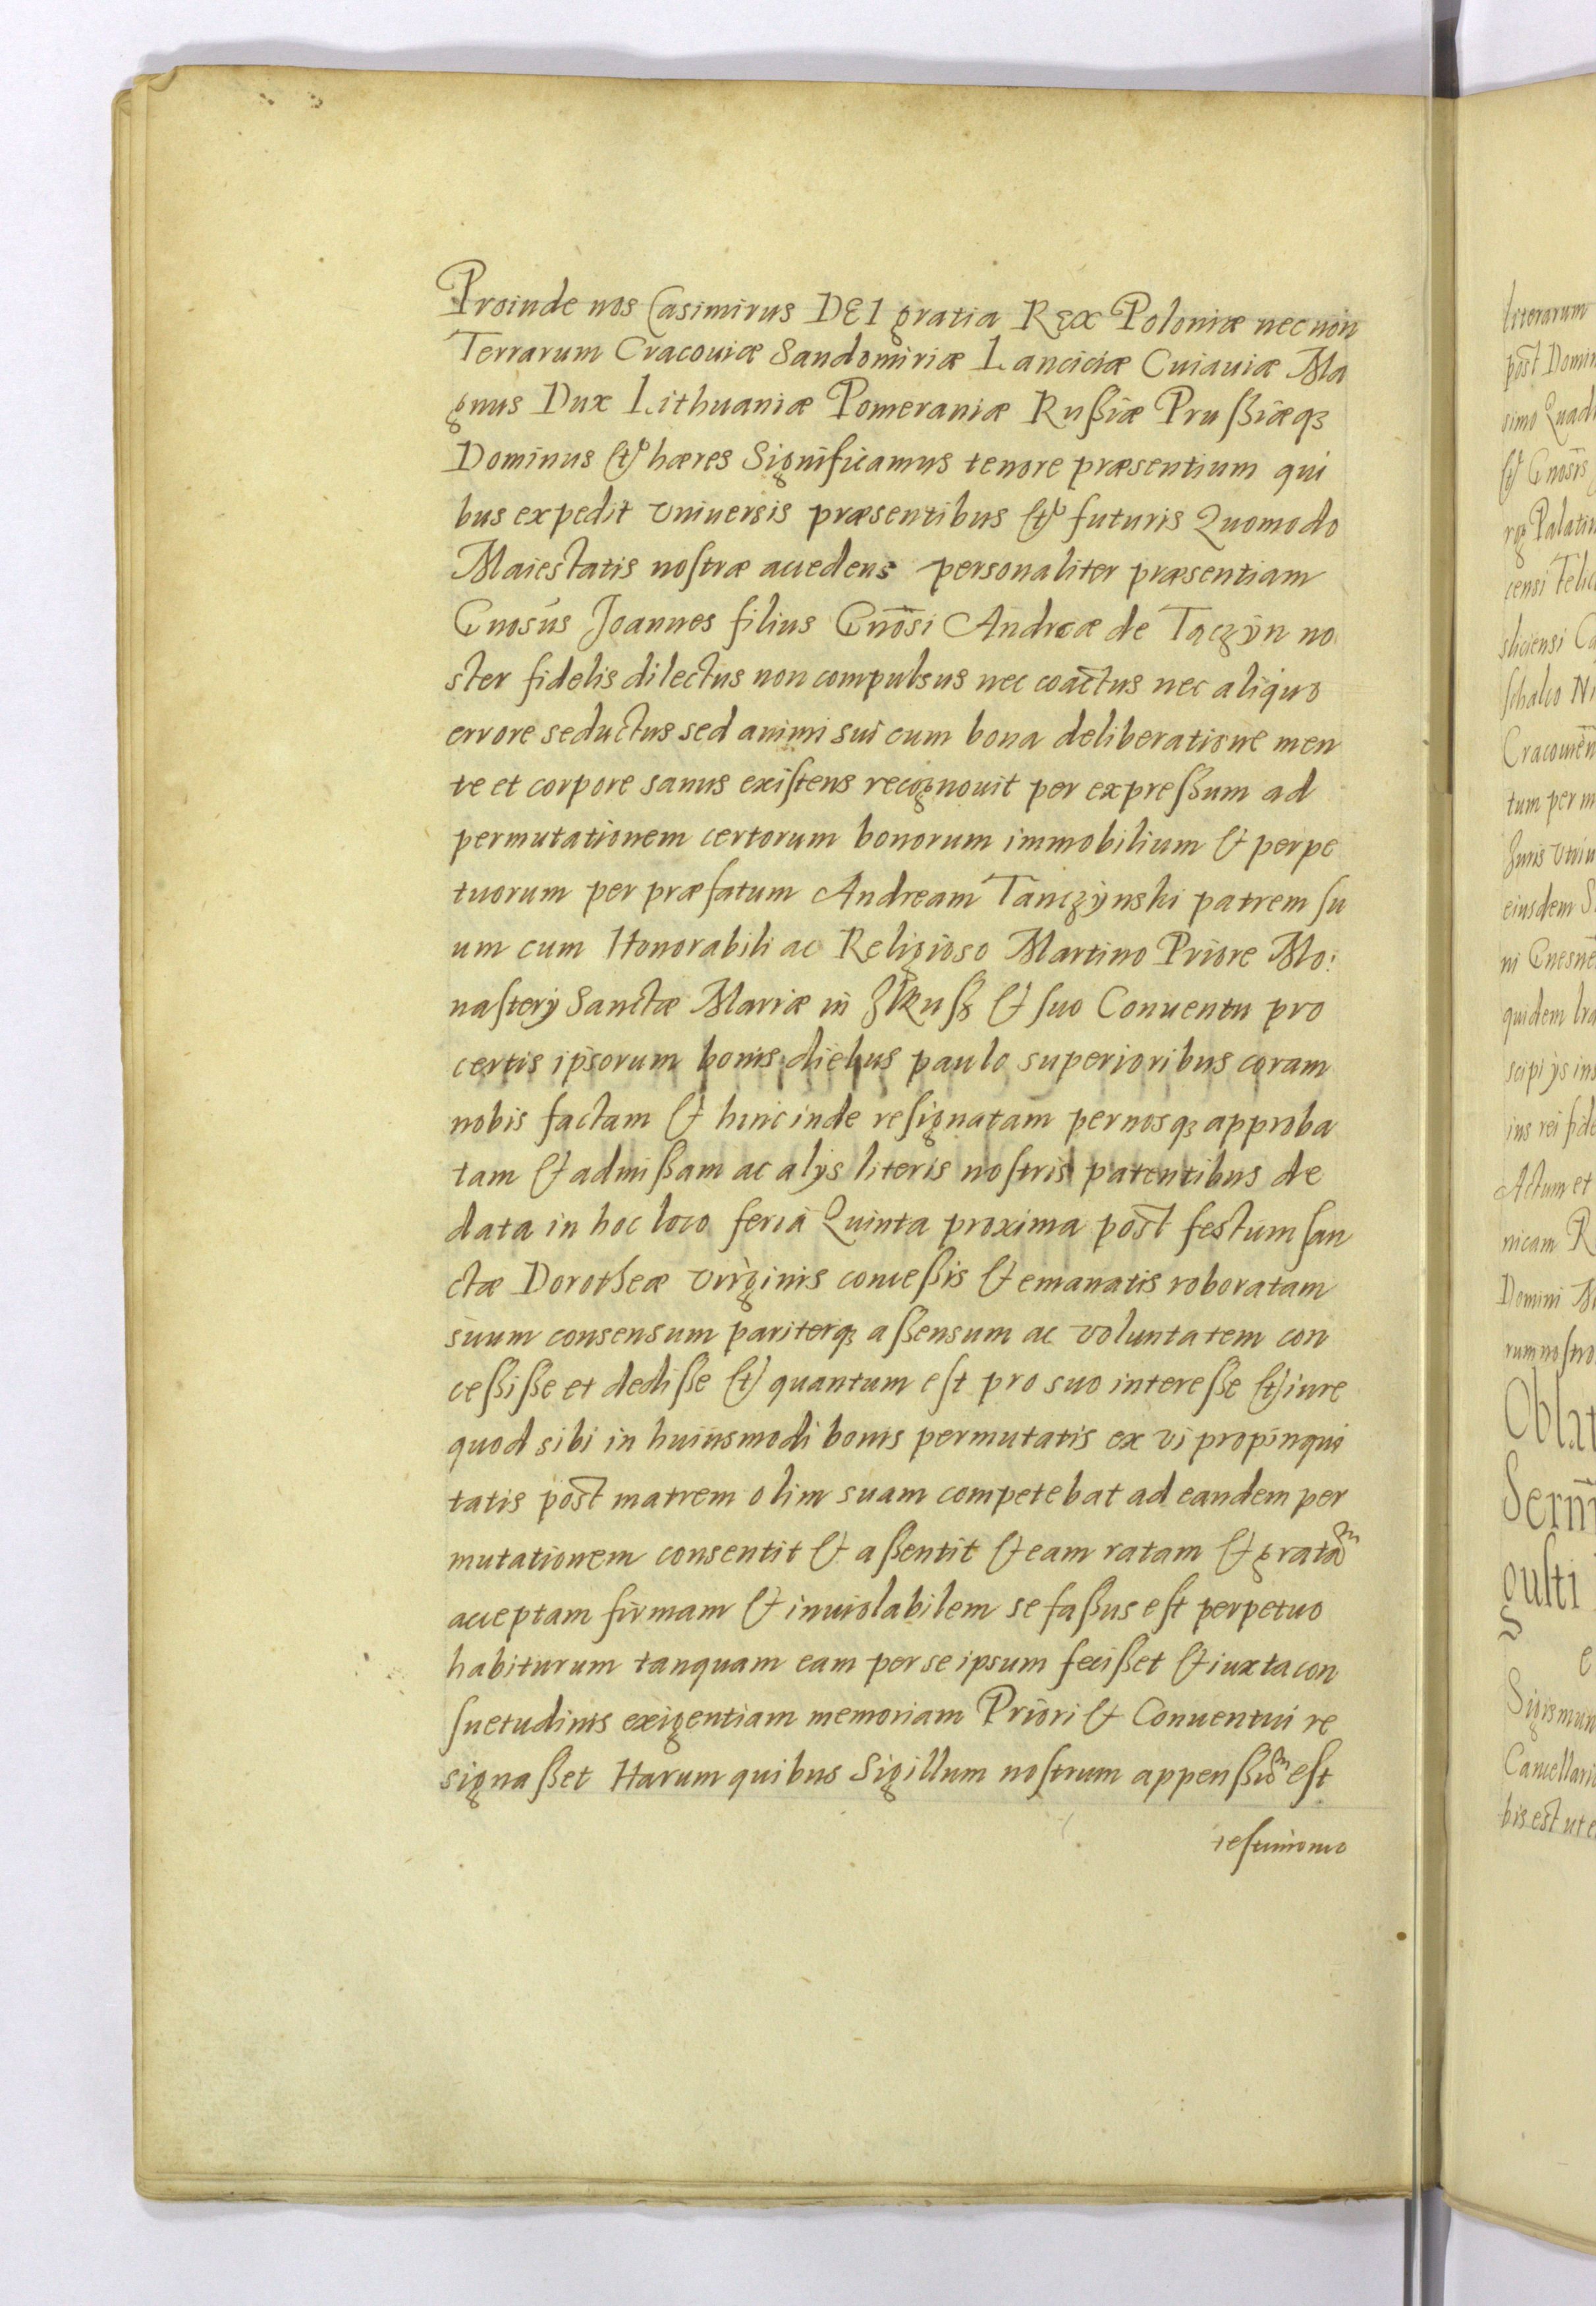 Proinde nos Casimirus DEI gratia Rex Poloniæ necnon
Terrarum Cracouiæ Sandomiriæ Lanciciæ Cuiauiæ Ma
gnus Dux Lithuaniæ Pomeraniæ Rußiæ Prußiæqꝫ
Dominus & hæres Significamus tenore præsentium qui
bus expedit vniuersis præsentibus & futuris Quomodo
Maiestatis nostræ accedens personaliter præsentiam
Gnosus Joannes filius Gnōsi Andreæ de Taczÿn no
ster fidelis dilectus non compulsus nec coactus nec aliquo
errore seductus sed animi sui cum bona deliberatione men
te et corpore sanus existens recognouit per expreßum ad
permutationem certorum bonorum immobilium & perpe
tuorum per præfatum Andream Tanczÿnski patrem su
um cum Honorabili ac Religioso Martino Priore Mo:
nasterij Sanctæ Mariæ in & suo Conuentu pro
certis ipsorum bonis diebus paulo superioribus coram
nobis factam & hinc inde resignatam per nosqꝫ approba
tam & admißam ac alijs literis nostris patentibus de
data in hoc loco feria Quinta proxima post festum san
ctæ Dorotheæ virginis conceßis & emanatis roboratam
suum consensum pariterqꝫ aßensum ac voluntatem con
ceßiße et dediße & quantum est pro suo intereße & iure
quod sibi in huiusmodi bonis permutatis ex vi propinqui
tatis post matrem olim suam competebat ad eandem per
mutationem consentit & aßentit & eam ratam & gratam
acceptam firmam & inuiolabilem se faßus est perpetuo
habiturum tanquam eam per se ipsum fecißet & iuxta con
suetudinis exigentiam memoriam Priori & Conuentui re
signaßet Harum quibus Sigillum nostrum appenßum est
testimonio
literarum
post Domin
simo Quad
& Gnosis
rqꝫ Palatin
censi Felic
sliciensi Ca
schalco Ni
Cracouien
tum per m
Juris vtriu
eiusdem S
ni Gnesne
quidem lra
scipijs ins
ius rei fide
Actum et
nicam R
Domini M
rum nostro
Oblat
Sernī
gusti
e
Sigismun
Cancellari
bis est ut e